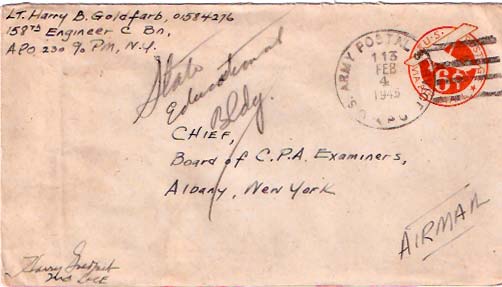 LT. Harry B. Goldfarb, 01584276
158TH Engineer C Bn,
APO 230 % PM, N.Y.
State
Educational
Bldg.
CHIEF,
Board of C.P.A. Examiners,
Albany, New York
U.S. ARMY POSTAL
113
FEB
4
1945
APO
U.S.
6¢
AIRMAIL
Harry Goldfarb